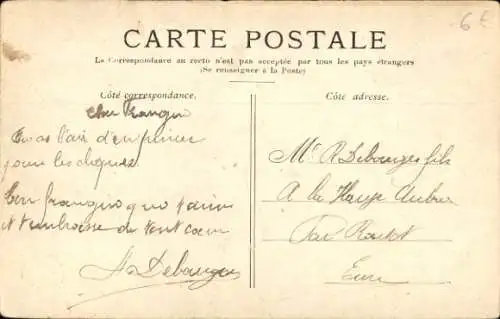 6€
CARTE POSTALE
La Correspondance au recto n'est pas acceptée par tous les pays étrangers
(Se renseigner à la Poste)
Côté correspondance.
cher frangin
Tu as l'air d'en pincer
pour les cliques
ton frangin qui t'aime
et t'embrasse de tout cœur
Debourges
Côté adresse.
Mr R Debourges fils
A la Haye Aubrée
Par Routot
Eure